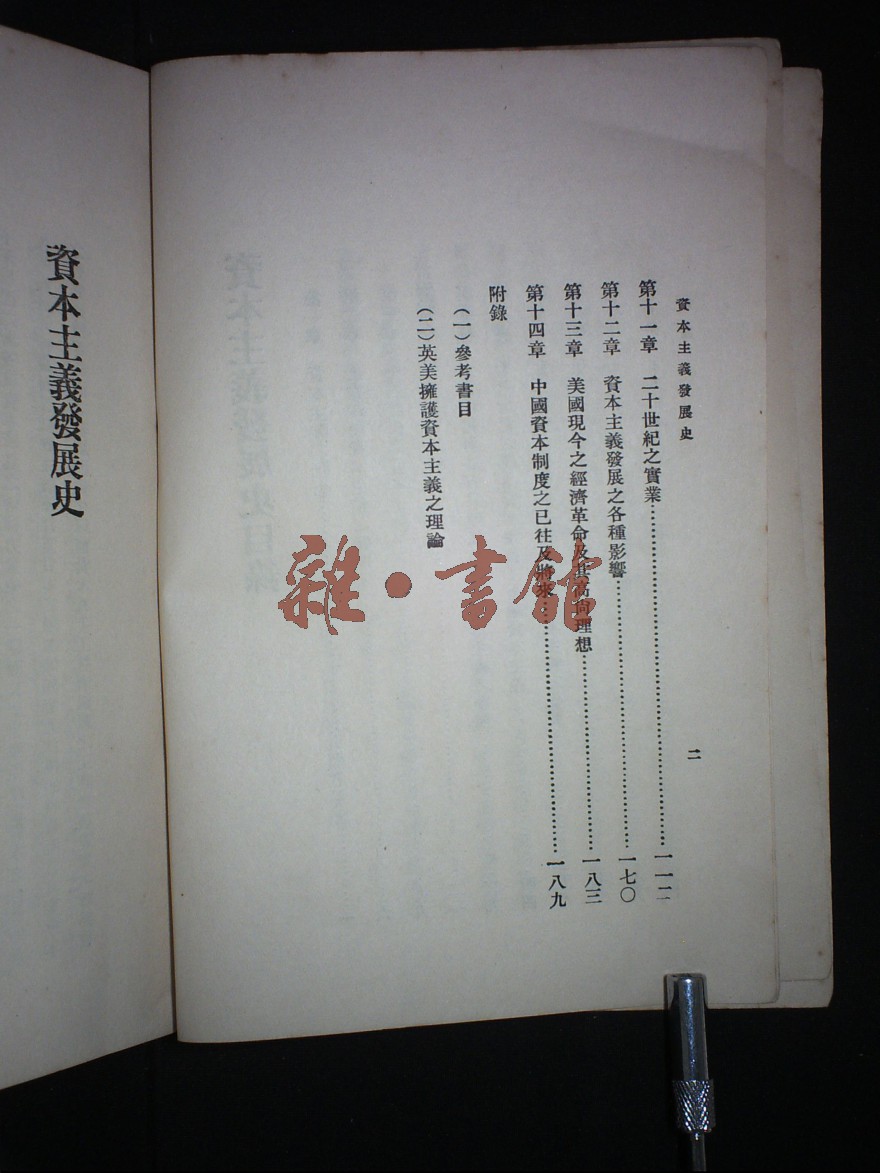 資本主義發展史
二
第十一章 二十世紀之實業……一一二
第十二章 資本主義發展之各種影響……一七〇
第十三章 美國現今之經濟革命及其高尚理想……一八三
第十四章 中國資本制度之已往及將來……一八九
附錄
(一)參考書目
(二)英美擁護資本主義之理論
資本主義發展史
雜·書館